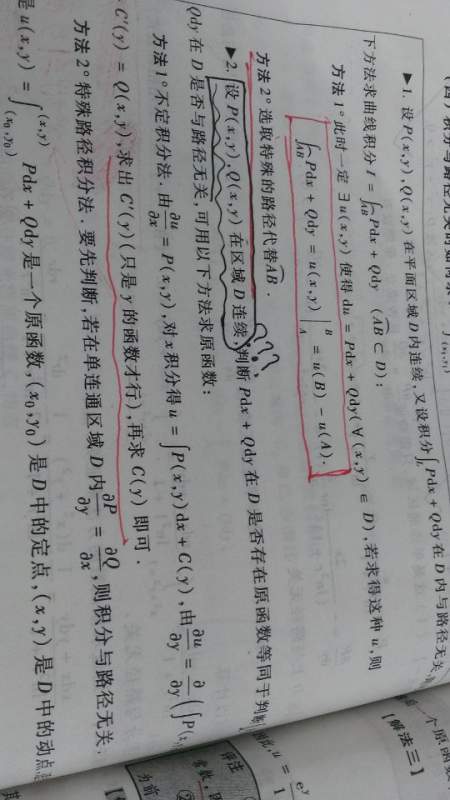 (四)积分与路径无关时如何求
▶1. 设P(x,y),Q(x,y)在平面区域D内连续,又设积分∫_L Pdx+Qdy在D内与路径无关,
下方法求曲线积分 I=∫_AB Pdx+Qdy (AB⊂D):
方法1° 此时一定∃u(x,y)使得du=Pdx+Qdy(∀(x,y)∈D),若求得这种u,则
∫_AB Pdx+Qdy=u(x,y)|_A^B=u(B)-u(A).
方法2° 选取特殊的路径代替AB.
▶2. 设P(x,y),Q(x,y)在区域D连续,判断Pdx+Qdy在D是否存在原函数等同于判断
???
Qdy在D是否与路径无关,可用以下方法求原函数:
方法1° 不定积分法.由∂u/∂x=P(x,y),对x积分得u=∫P(x,y)dx+C(y),由∂u/∂y=∂/∂y(∫P(x,
C′(y)=Q(x,y),求出C′(y)(只是y的函数才行),再求C(y)即可.
方法2° 特殊路径积分法.要先判断,若在单连通区域D内∂P/∂y=∂Q/∂x,则积分与路径无关,
是 u(x,y)=∫_(x₀,y₀)^(x,y) Pdx+Qdy是一个原函数,(x₀,y₀)是D中的定点,(x,y)是D中的动点
一个原函数
[解法三]
因此,u=
评注